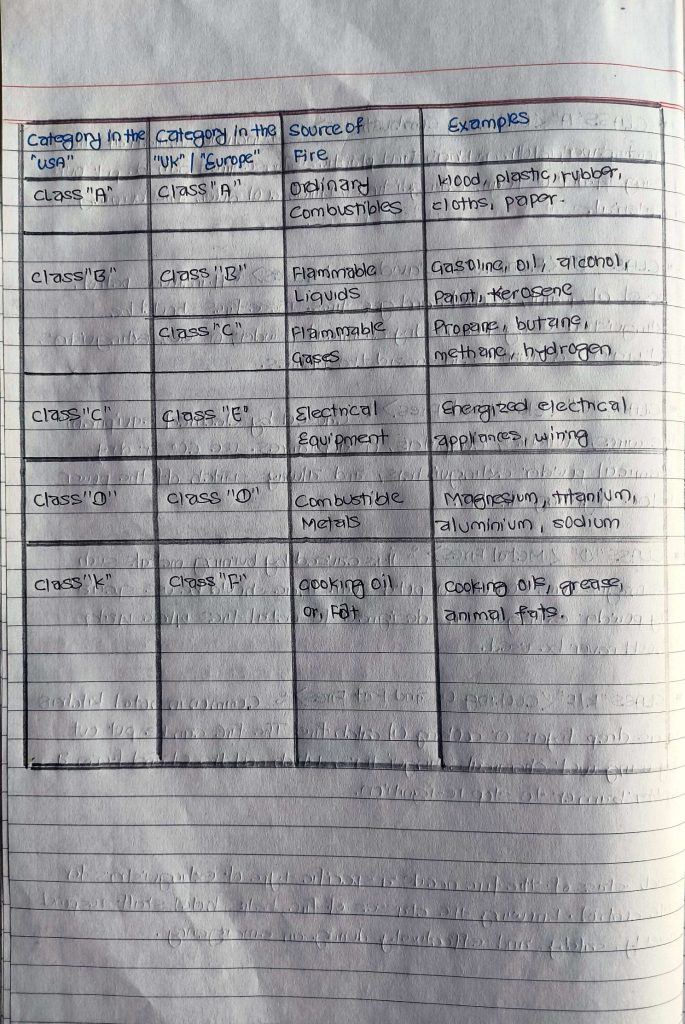 Category in the Category in the Source of Examples
"USA" "UK" / "Europe" Fire
Class "A" Class "A" Ordinary Wood, plastic, rubber,
Combustibles cloths, paper.
Class "B" Class "B" Flammable Gasoline, oil, alcohol,
Liquids Paint, Kerosene
Class "C" Flammable Propane, butane,
Gases methane, hydrogen
Class "C" Class "E" Electrical Energized electrical
Equipment appliances, wiring
Class "D" Class "D" Combustible Magnesium, titanium,
Metals aluminium, sodium
Class "K" Class "F" Cooking oil Cooking oils, grease,
or, Fat animal fats.